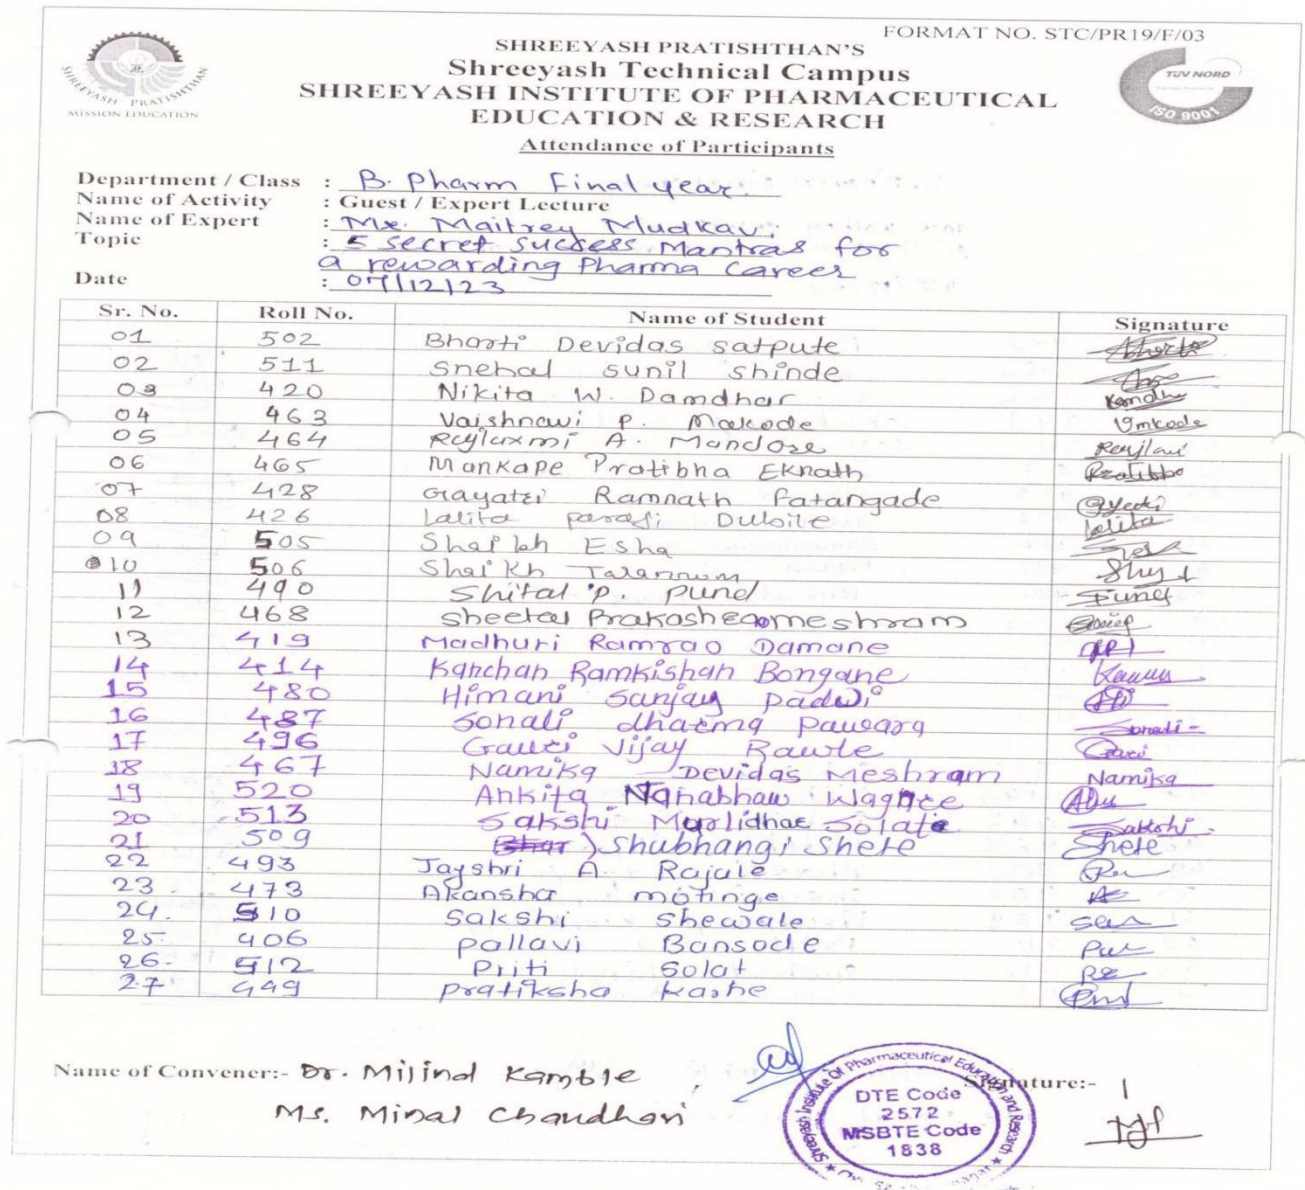 FORMAT NO. STC/PR19/F/03
SHREEYASH PRATISHTHAN'S
Shreeyash Technical Campus
SHREEYASH INSTITUTE OF PHARMACEUTICAL
EDUCATION & RESEARCH
SHREEYASH PRATISHTHAN
MISSION EDUCATION
TUV NORD
ISO 9001
Attendance of Participants
Department / Class : B. Pharm Final year.
Name of Activity : Guest / Expert Lecture
Name of Expert : Mr. Maitrey Mudkavi
Topic : 5 secret success Mantras for
a rewarding Pharma Career
Date : 07/12/23
Sr. No. Roll No. Name of Student Signature
01 502 Bharti Devidas satpute
02 511 Snehal sunil shinde
03 420 Nikita W. Damdhar
04 463 Vaishnawi P. Makode Vmkode
05 464 Rajlaxmi A. Mandore
06 465 Mankape Pratibha Eknath Pratibha
07 428 Gayatri Ramnath Fatangade
08 426 Lalita parasji Dubile Lalita
09 505 Shaikh Esha
10 506 Shaikh Tarannum
11 490 Shital P. Pund
12 468 Sheetal Prakash meshram
13 419 Madhuri Ramrao Damane
14 414 Kanchan Ramkishan Bongane
15 480 Himani Sanjay padwi
16 487 Sonali dharma pawara Sonali
17 496 Gauri Vijay Rawle Gauri
18 467 Namika Devidas Meshram Namika
19 520 Ankita Nanabhau Waghre
20 513 Sakshi Murlidhar Solate Sakshi.
21 509 Shubhangi Shete Shete
22 493 Jayshri A Rajule
23 473 Akansha motinge
24. 510 Sakshi Shewale
25. 406 pallavi Bansode
26. 512 Priti Solat
27 449 pratiksha Karhe
Name of Convener:- Dr. Milind Kamble Signature:-
Ms. Minal Chaudhari
Shreeyash Institute Of Pharmaceutical Education and Research
DTE Code
2572
MSBTE Code
1838